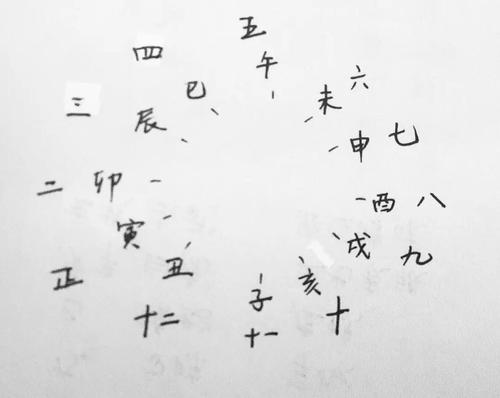 五
四
午
六
巳
未
三
辰
申 七
二 卯
酉 八
寅
戌 九
正
丑
亥
子
十二
十一
十